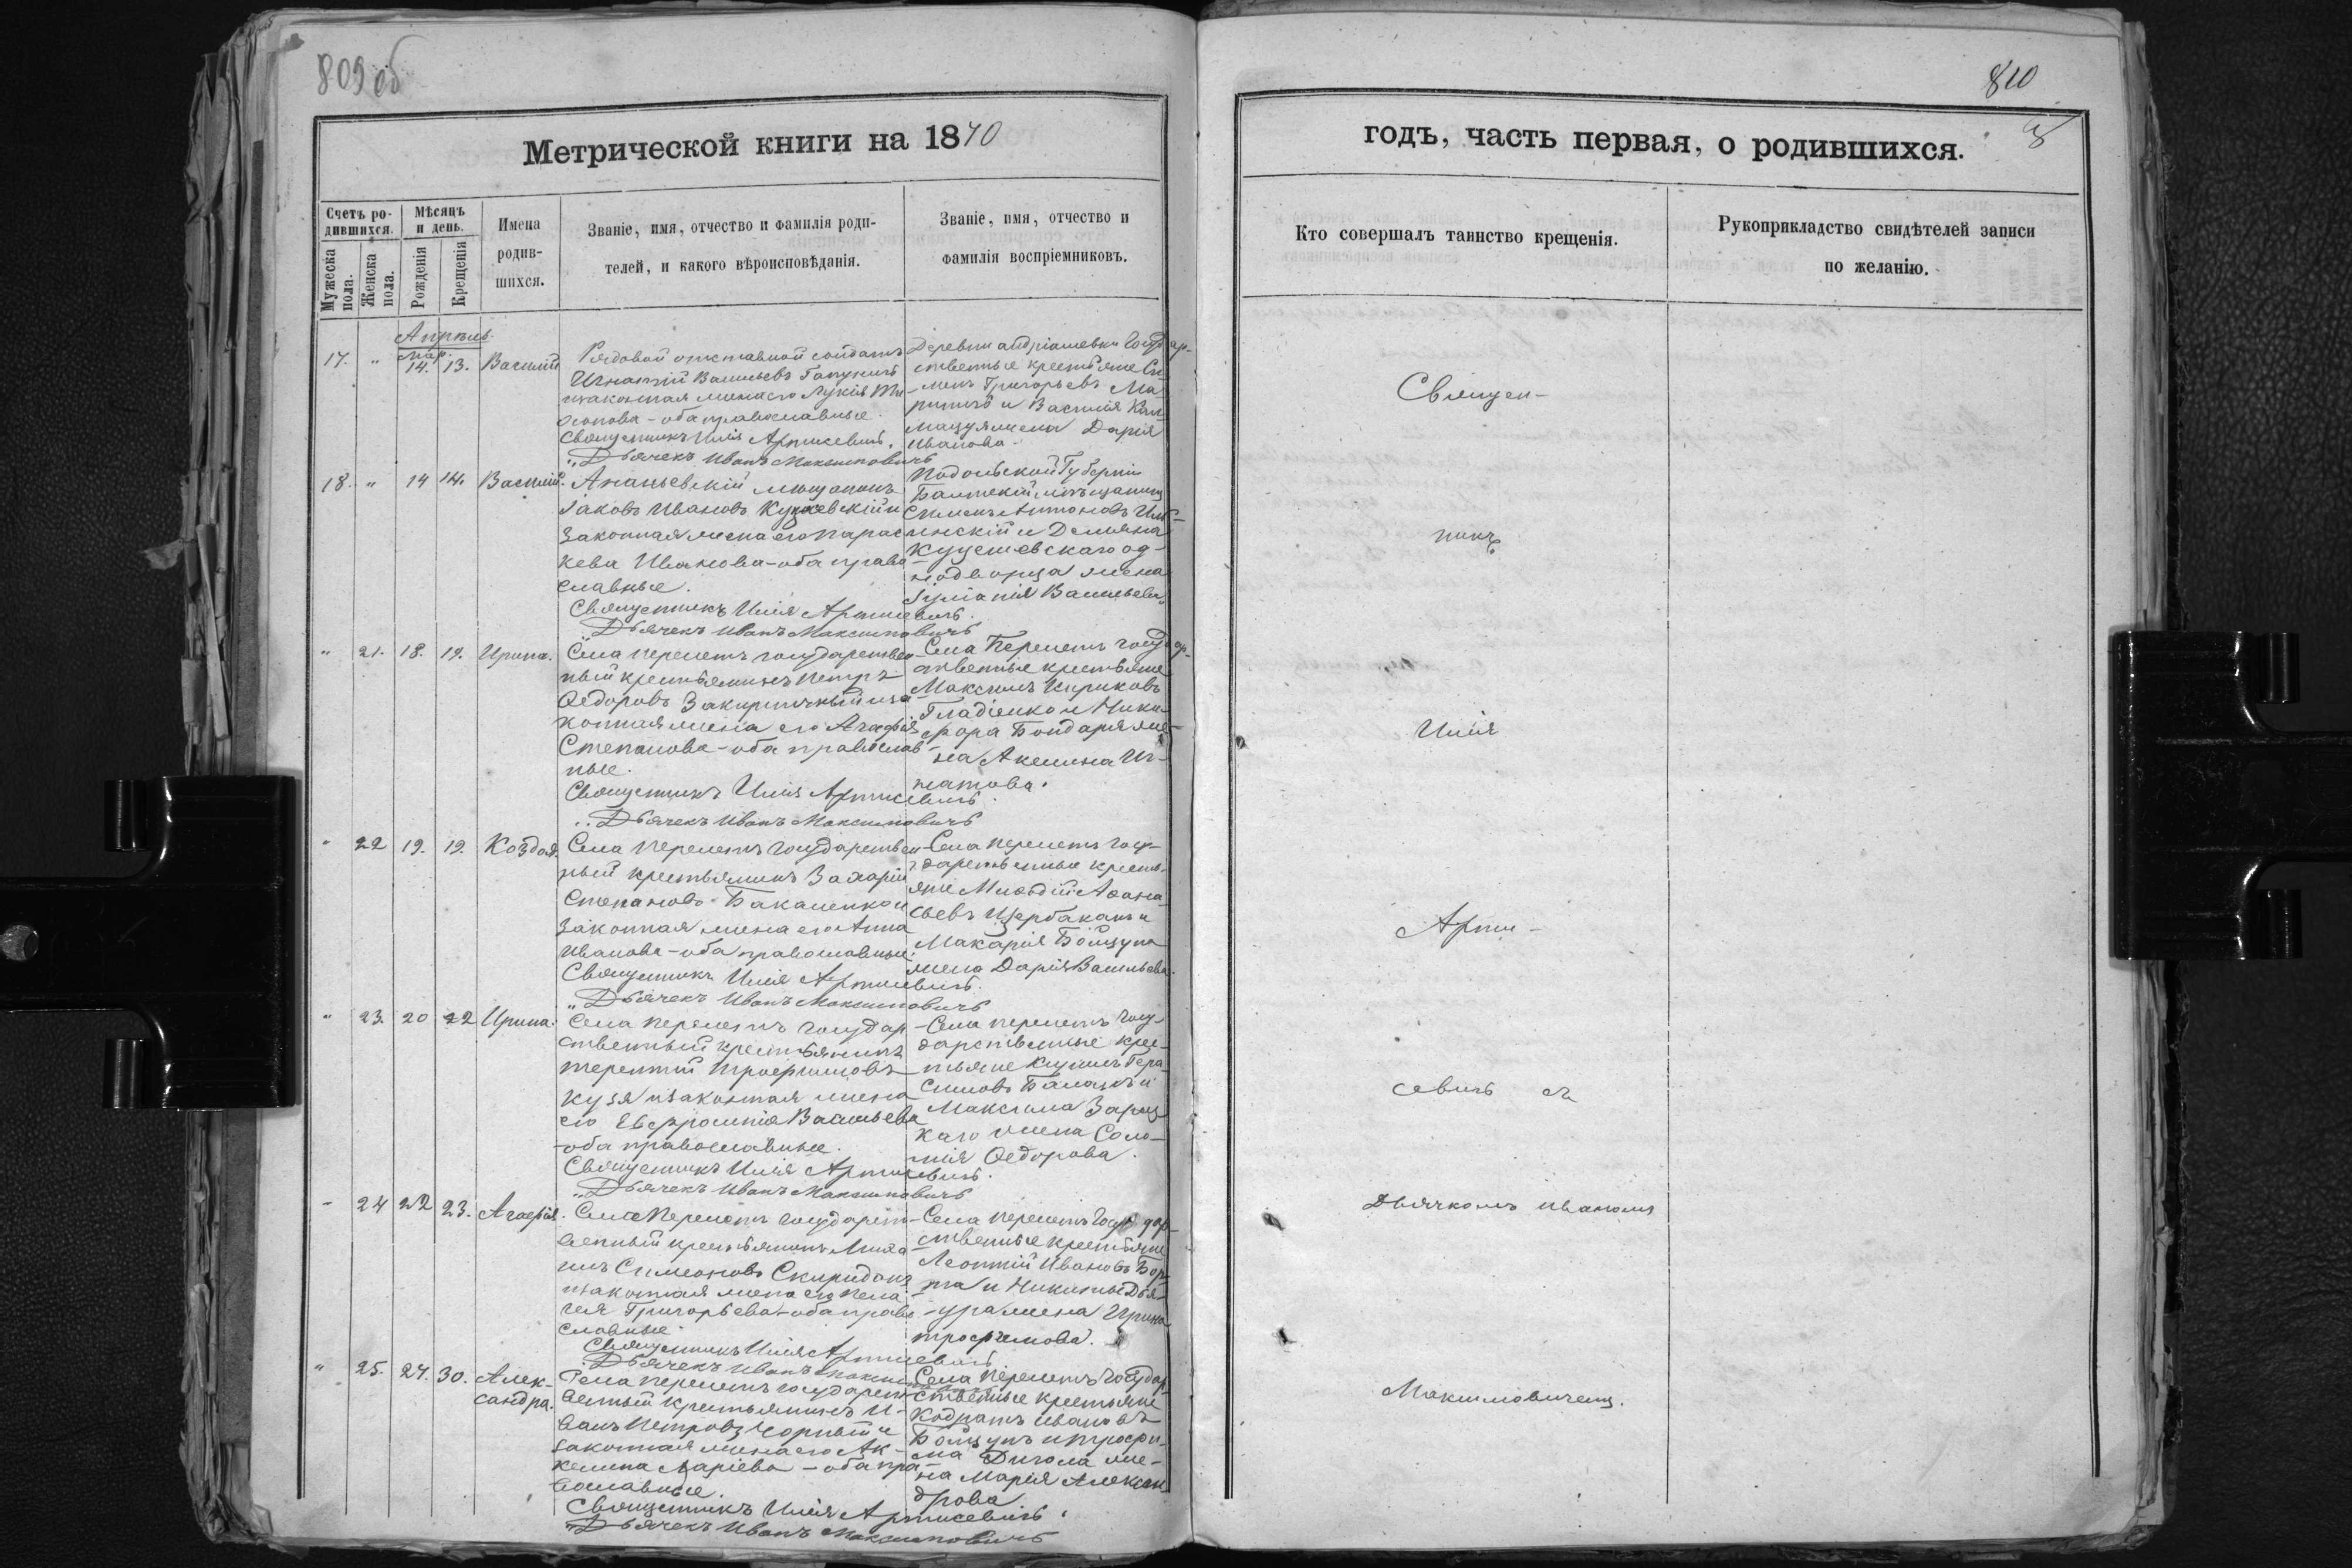 809 об
810
3
Метрической книги на 1870
годъ, часть первая, о родившихся.
Счетъ ро-
дившихся.
Мужеска
пола.
Женска
пола.
Мѣсяцъ
и день.
Рожденія
Крещенія
Имена
родив-
шихся.
Званіе, имя, отчество и фамилія роди-
телей, и какого вѣроисповѣданія.
Званіе, имя, отчество и
фамилія воспріемниковъ.
Кто совершалъ таинство крещенія.
Рукоприкладство свидѣтелей записи
по желанію.
Апрѣль.
Мар.
17. " 14. 13. Василій
Рядовой отставной солдатъ
Игнатій Васильевъ
изаконная жена его Лукія
- оба православные.
Священникъ Илія Артисевичъ.
Дьячекъ Иванъ Максимовичъ
Деревни Андріяшевки Государ-
ственные крестьяне Си-
менъ Григорьевъ Ма-
и Василія
жена Дарія
Иванова.
18. " 14 14. Василій.
Ананьевскій мещанинъ
Іаковъ Ивановъ и
Законная жена его Парас
кева Иванова - оба право
славные.
Священникъ Илія Артисевичъ.
Дьячекъ Иванъ Максимовичъ
Подольской Губерніи
Балтскій мѣщанинъ
Сименъ Антоновъ
и Деміяна
од-
нодворца жена
Іуліанія Васильева.
" 21. 18. 19. Ирина.
Села Перелетъ государствен
ный крестьянинъ Петръ
Ѳедоровъ Закирничный иза
конная жена его Агафія
Степанова - оба православ-
ные.
Священникъ Илія Артисевичъ.
Дьячекъ Иванъ Максимовичъ
Села Перелетъ Государ-
ственные крестьяне
Максимъ Кириковъ
Гладіенко и Ники-
фора Бондаря же-
на Акилина Иг-
натова.
" 22 19. 19. Коздоя.
Села Перелетъ Государствен
ный крестьянинъ Захарій
Степановъ Бакаленко и
Законная жена его Анна
Иванова - оба православные.
Священникъ Илія Артисевичъ.
Дьячекъ Иванъ Максимовичъ
Села Перелетъ Госу-
дарственные кресть-
яне Меѳодій Аѳана-
сьевъ Щербаканъ и
Макарія Боицуна
жена Дарія Васильева.
" 23. 20 22 Ирина.
Села Перелетъ Государ
ственный крестьянинъ
Терентій Трофимовъ
Кузя изаконная жена
его Евфросинія Васильева
- оба православные.
Священникъ Илія Артисевичъ.
Дьячекъ Иванъ Максимовичъ
Села Перелетъ Госу-
дарственные крес-
тьяне Гера-
симовъ и
Максима Зариц
каго жена Соло-
мія Ѳедорова.
" 24 22 23. Агафія.
Села Перелетъ Государст-
венный крестьянинъ Миха
илъ Симоновъ Скириданъ
изаконная жена его Пела-
гея Григорьева - оба право
славные.
Священникъ Илія Артисевичъ
Дьячекъ Иванъ
Села Перелетъ Государ-
ственные крестьяне
Леонтій Ивановъ
и Никиты
жена Ирина
Трофимова.
" 25. 27. 30. Алек-
сандра.
Села Перелетъ государст-
венный крестьянинъ И-
ванъ Петровъ Чорный и
законная жена его Ак-
килина - оба пра-
вославные.
Священникъ Илія Артисевичъ.
Дьячекъ Иванъ Максимовичъ
Села Перелетъ Государ
ственные крестьяне
Кодратъ Ивановъ
Боицунъ и Трофи-
ма Дигола же-
на Марія Алексан
дрова
Священ-
никъ
Илія
Арти-
севичъ съ
Дьячкомъ Иваномъ
Максимовичемъ.